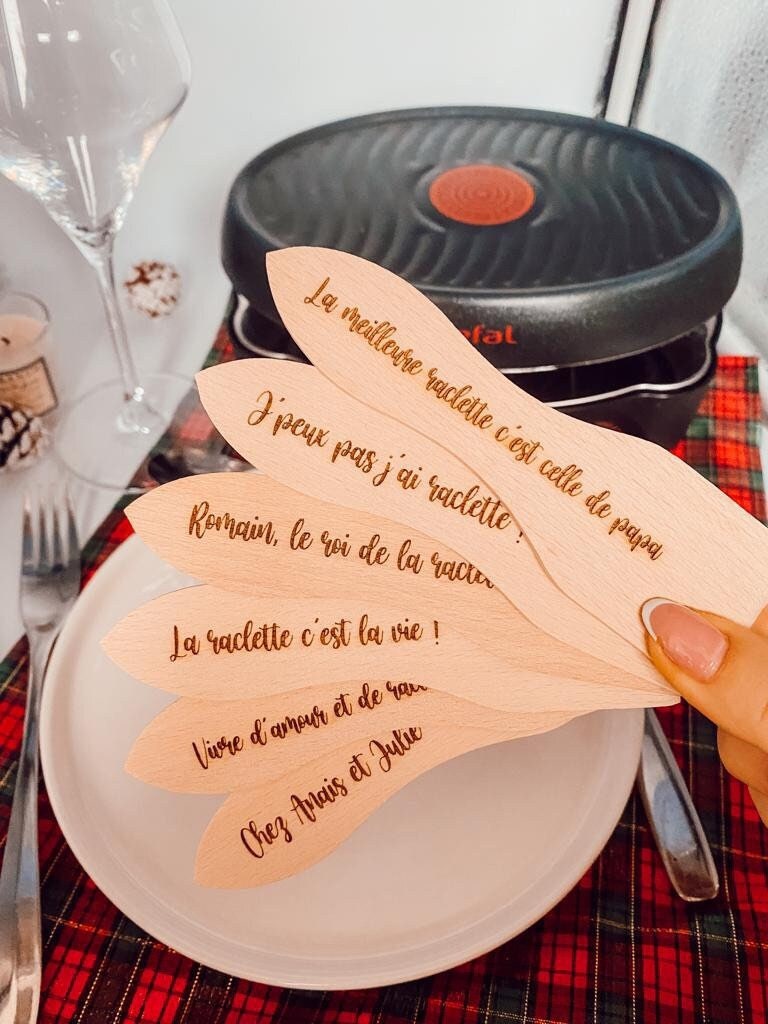 La meilleure raclette c'est celle de papa
J'peux pas j'ai raclette !
Romain, le roi de la
La raclette c'est la vie !
Vivre d'amour et de
Chez Anais et Julie